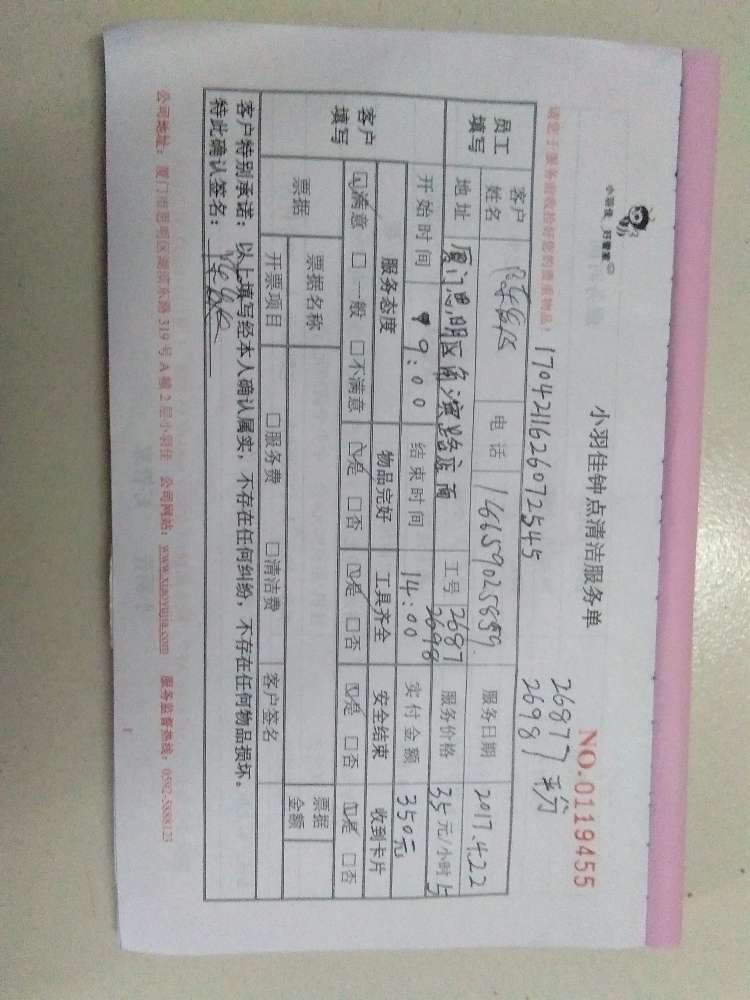 小羽佳 好管家
小羽佳钟点清洁服务单
NO.0119455
1704211626072545
26877
26981 平分
请您于服务前收拾好您的贵重物品:
员工填写
客户姓名 电话 14659025859. 服务日期 2017.4.22
地址 厦门思明区 店面 工号 2687 2698 服务价格 35元/小时 5
开始时间 9:00 结束时间 14:00 实付金额 350元
客户填写
服务态度 物品完好 工具齐全 安全结束 收到卡片
☑满意 □一般 □不满意 ☑是 □否 ☑是 □否 ☑是 □否 ☑是 □否
票据 票据名称 票据金额
开票项目 □服务费 □清洁费 客户签名
客户特别承诺:以上填写经本人确认属实,不存在任何纠纷,不存在任何物品损坏。
特此确认签名:
公司地址:厦门市思明区湖滨东路319号A幢2层小羽佳 公司网站:www.xiaoyujia.com 服务监督热线:0592-5888123